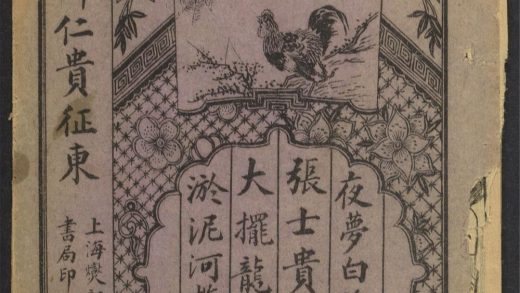 夜夢白
張士貴
大擺龍
淤泥河
上海
書局印
仁貴征東